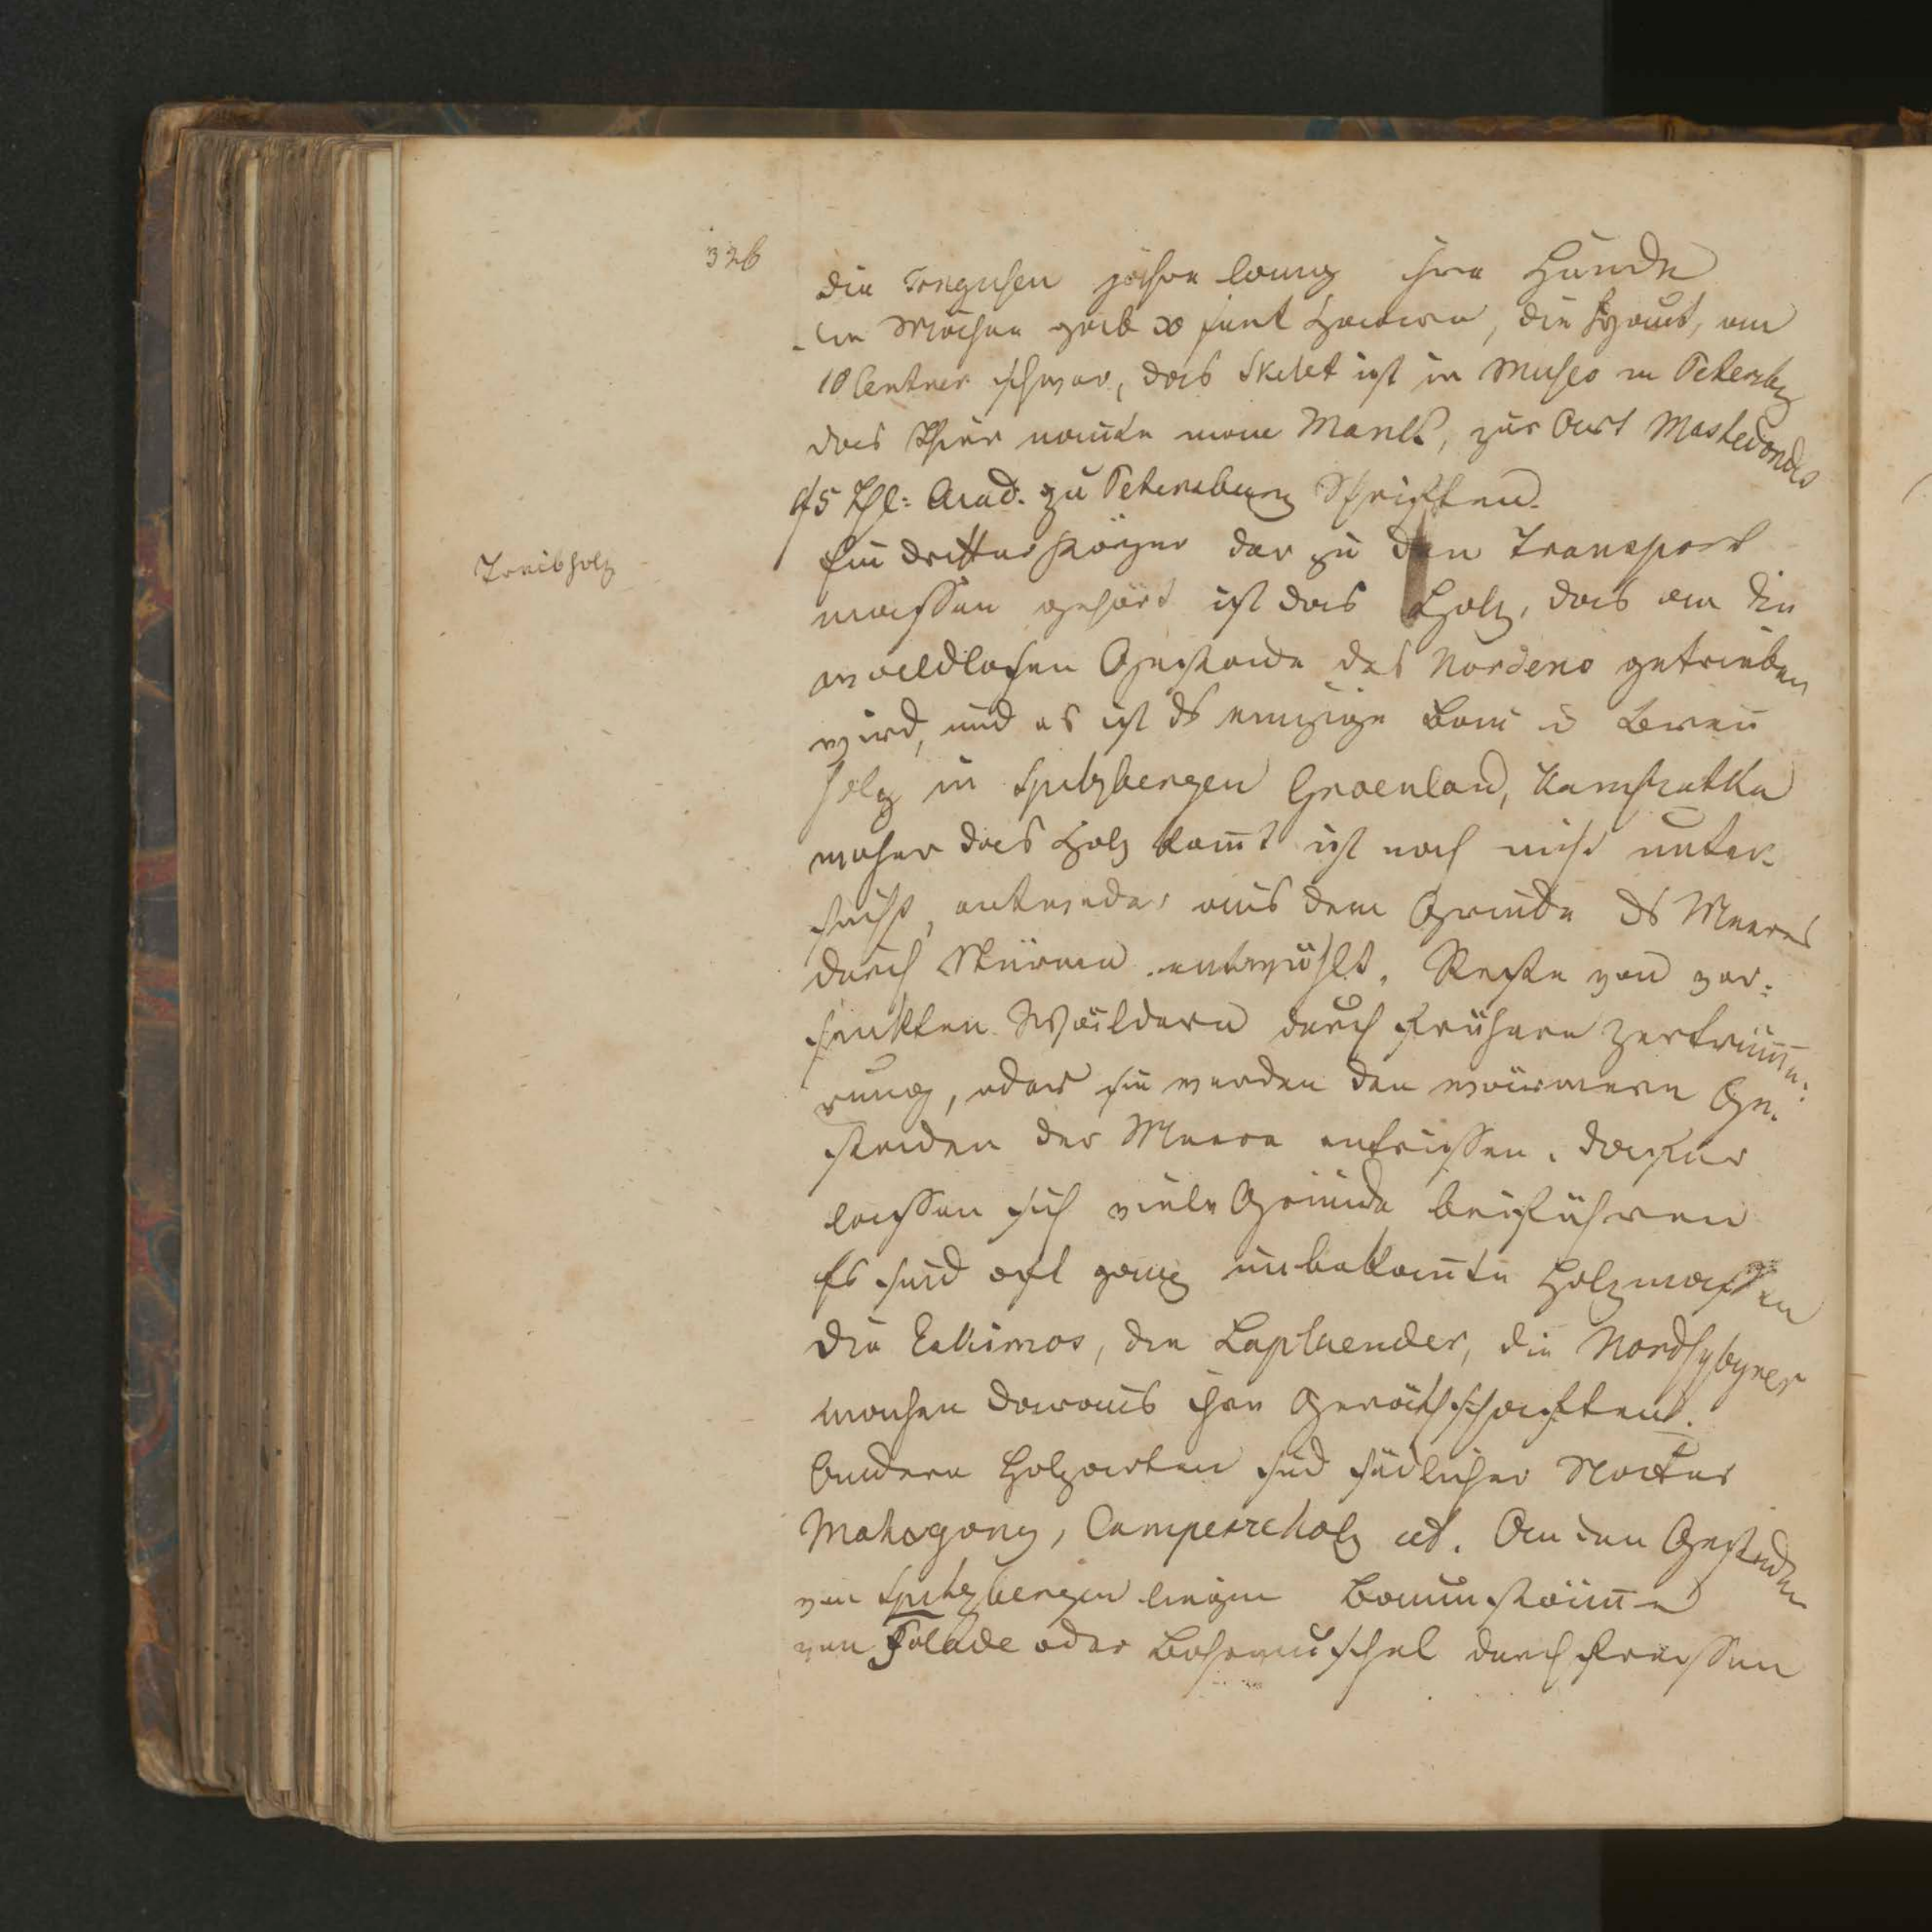 326
die Tongusen jahre lang ihre Hunde
die Mächne gab 30 funt Haare, die Haut, am
10 Centner schwer, das Skelet ist in Museo in Petersbg
das Thier nannte man Mamth, zur Art Mastedondes
5 Thl: Acad: zu Petersburg Schriften.
Treibholz
Ein dritter Körper der zu den Transport
massen gehört ist das Holz, das an die
waldlosen Gestade des Nordens getrieben
wird, und es ist ds einzige Bau u Breñ
holz in Spitzbergen Groenland, Kamsatka
woher das Holz kom̄t ist noch nicht unter-
sucht, entweder aus dem Grunde ds Meeres
durch Stürme entwühlt. Reste von ver:
senkten Wäldern durch frühere Zertrüm̄e:
rung, oder sie werden den wärmern Ge-
staden der Meere entrissen. dafür
lassen sich viele Gründe beiführen
Es sind oft ganz unbekan̄te Holzmassen
die Eskimos, die Laplaender, die Nordsybyrer
machen daraus ihre Geräthschaften.
Andere Holzarten sind südlicher Natur
Mahogany, Campescheholz ect. An den Gestaden
von Spitzbergen liegen Baumstäm̄e
von Folade oder Bohrmuschel durchfressen